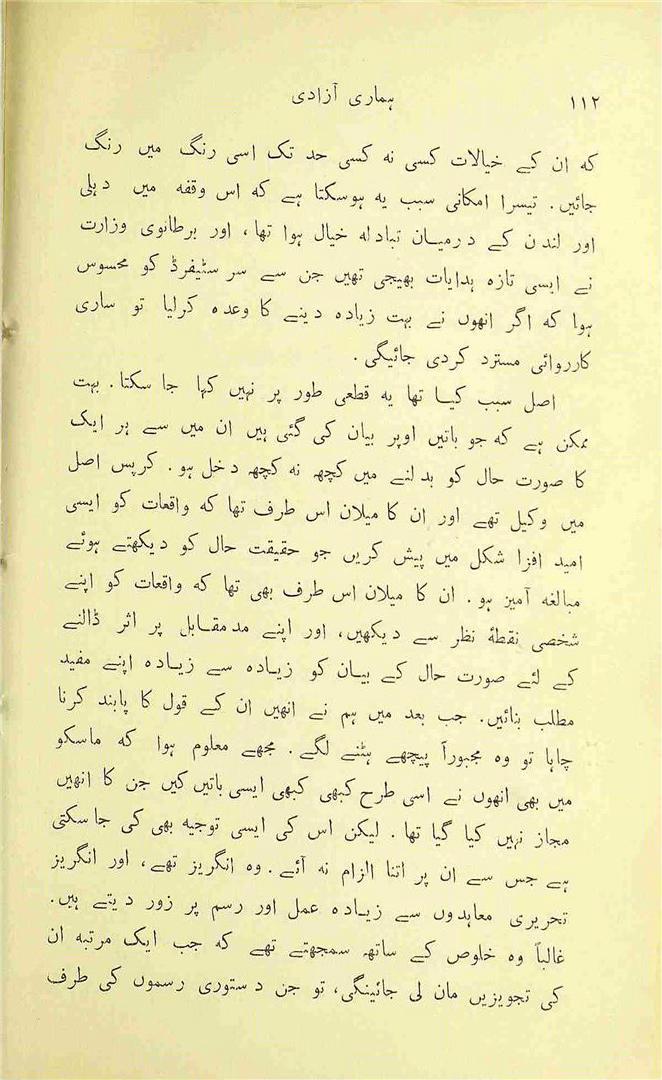 ۱۱۲ ہماری آزادی
کہ ان کے خیالات کسی نہ کسی حد تک اسی رنگ میں رنگ
جائیں۔ تیسرا امکانی سبب یہ ہوسکتا ہے کہ اس وقفہ میں دہلی
اور لندن کے درمیان تبادلہ خیال ہوا تھا، اور برطانوی وزارت
نے ایسی تازہ ہدایات بھیجی تھیں جن سے سر سٹیفرڈ کو محسوس
ہوا کہ اگر انھوں نے بہت زیادہ دینے کا وعدہ کرلیا تو ساری
کارروائی مسترد کردی جائیگی۔
اصل سبب کیا تھا یہ قطعی طور پر نہیں کہا جا سکتا۔ بہت
ممکن ہے کہ جو باتیں اوپر بیان کی گئی ہیں ان میں سے ہر ایک
کا صورت حال کو بدلنے میں کچھ نہ کچھ دخل ہو۔ کرپس اصل
میں وکیل تھے اور ان کا میلان اس طرف تھا کہ واقعات کو ایسی
امید افزا شکل میں پیش کریں جو حقیقت حال کو دیکھتے ہوئے
مبالغہ آمیز ہو۔ ان کا میلان اس طرف بھی تھا کہ واقعات کو اپنے
شخصی نقطۂ نظر سے دیکھیں، اور اپنے مدمقابل پر اثر ڈالنے
کے لئے صورت حال کے بیان کو زیادہ سے زیادہ اپنے مفید
مطلب بنائیں۔ جب بعد میں ہم نے انھیں ان کے قول کا پابند کرنا
چاہا تو وہ مجبوراً پیچھے ہٹنے لگے۔ مجھے معلوم ہوا کہ ماسکو
میں بھی انھوں نے اسی طرح کبھی کبھی ایسی باتیں کیں جن کا انھیں
مجاز نہیں کیا گیا تھا۔ لیکن اس کی ایسی توجیہ بھی کی جاسکتی
ہے جس سے ان پر اتنا الزام نہ آئے۔ وہ انگریز تھے، اور انگریز
تحریری معاہدوں سے زیادہ عمل اور رسم پر زور دیتے ہیں۔
غالباً وہ خلوص کے ساتھ سمجھتے تھے کہ جب ایک مرتبہ ان
کی تجویزیں مان لی جائینگی، تو جن دستوری رسموں کی طرف